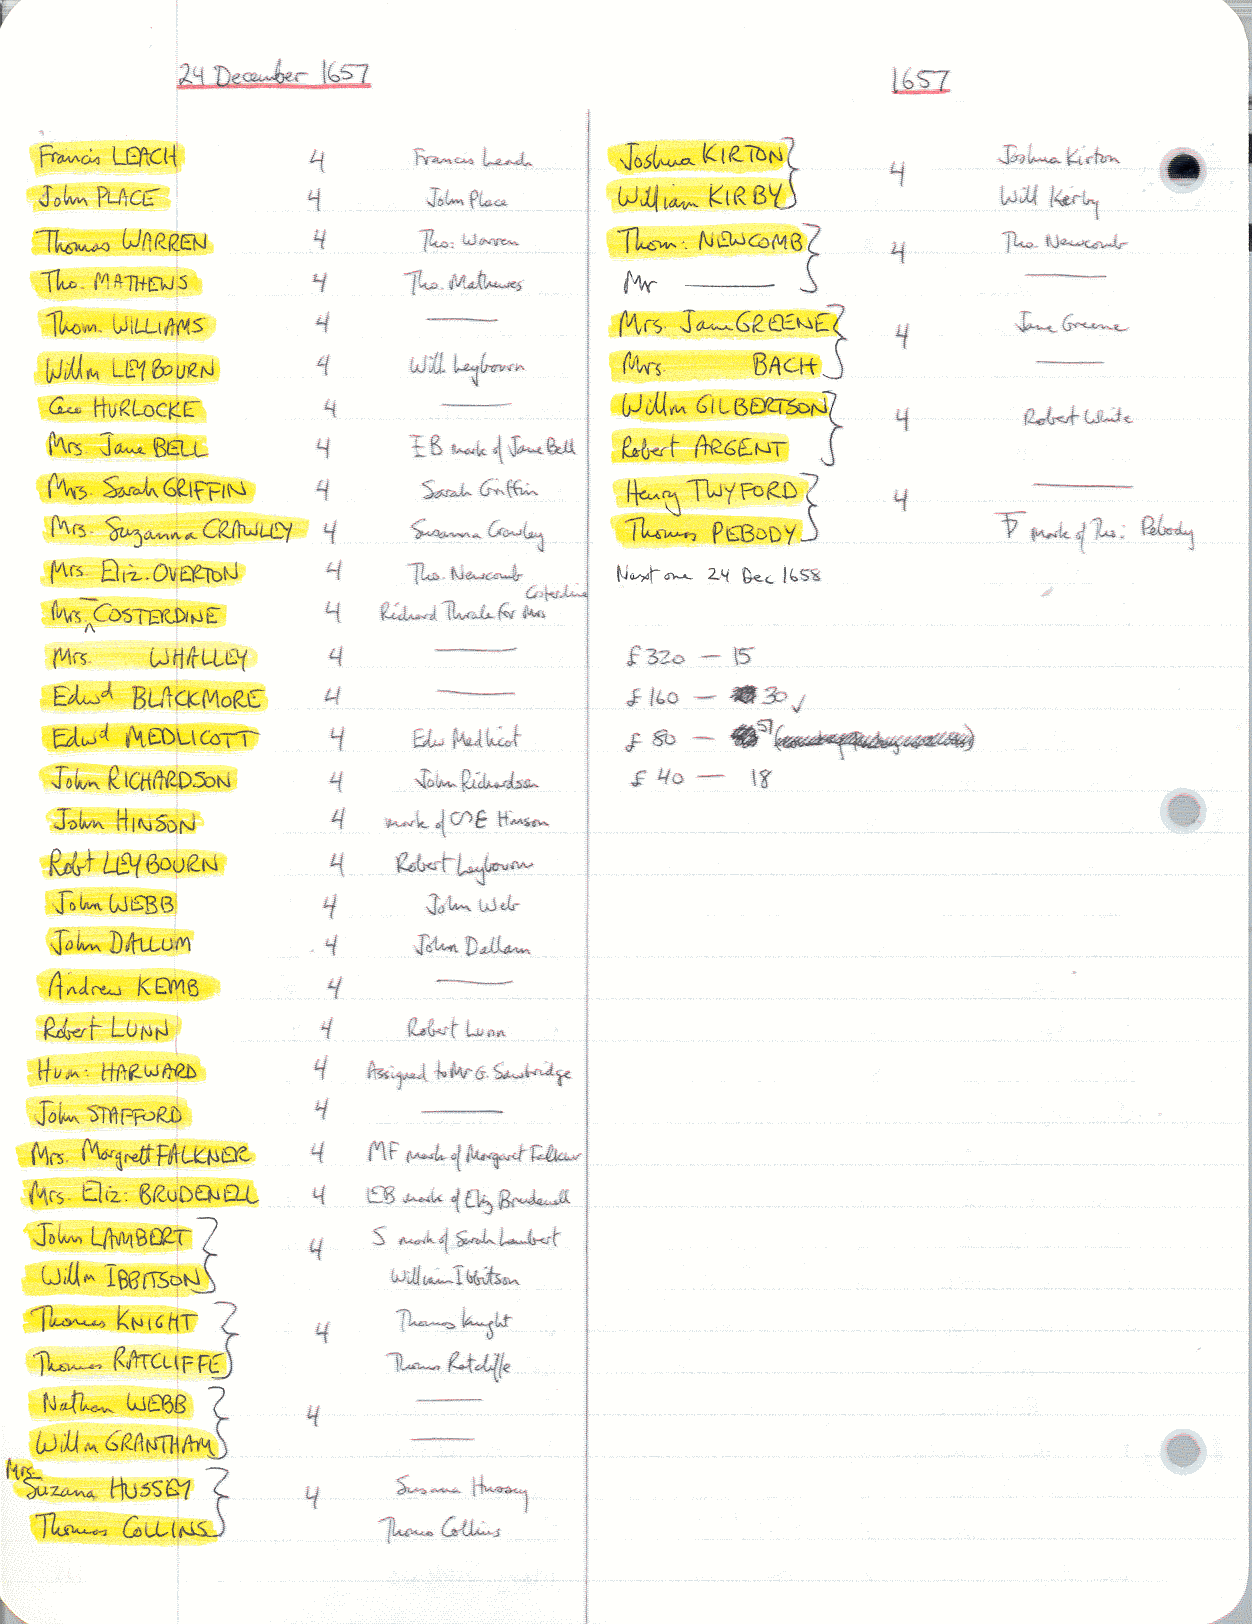 24 December 1657
Francis LEACH 4 Francis Leach
John PLACE 4 John Place
Thomas WARREN 4 Tho: Warren
Tho. MATHEWS 4 Tho. Mathewes
Thom. WILLIAMS 4 ———
Willm LEYBOURN 4 Will. Leybourn
Geo HURLOCKE 4 ———
Mrs. Jane BELL 4 IB mark of Jane Bell
Mrs. Sarah GRIFFIN 4 Sarah Griffin
Mrs. Suzanna CRAWLEY 4 Susanna Crowley
Mrs. Eliz. OVERTON 4 Tho. Newcomb
Mrs. COSTERDINE 4 Richard Thrale for Mrs Costerdine
Mrs. WHALLEY 4 ———
Edwd BLACKMORE 4 ———
Edwd MEDLICOTT 4 Edw Medlicot
John RICHARDSON 4 John Richardson
John HINSON 4 mark of SE Hinson
Robt LEYBOURN 4 Robert Leybourn
John WEBB 4 John Web
John DALLUM 4 John Dallam
Andrew KEMB 4 ———
Robert LUNN 4 Robert Lunn
Hum: HARWARD 4 Assigned to Mr G. Sawbridge
John STAFFORD 4 ———
Mrs. Margrett FALKNER 4 MF mark of Margaret Falkner
Mrs. Eliz: BRUDENELL 4 EB mark of Eliz Brudenell
John LAMBERT } 4 S mark of Sarah Lambert
Willm IBBITSON } William Ibbitson
Thomas KNIGHT } 4 Thomas Knight
Thomas RATCLIFFE } Thomas Ratcliffe
Nathan WEBB } 4 ———
Willm GRANTHAM } ———
Mrs. Suzana HUSSEY } 4 Susana Hussey
Thomas COLLINS } Thomas Collins
1657
Joshua KIRTON } 4 Joshua Kirton
William KIRBY } Will Kerby
Thom: NEWCOMB } 4 Tho. Newcomb
Mr ——— } ———
Mrs. Jane GREENE } 4 Jane Greene
Mrs. BACH } ———
Willm GILBERTSON } 4 Robert White
Robert ARGENT }
Henry TWYFORD } 4 ———
Thomas PEBODY } mark of Tho: Pebody
Next one 24 Dec 1658
£320 — 15
£160 — 30 ✓
£80 — 57
£40 — 18